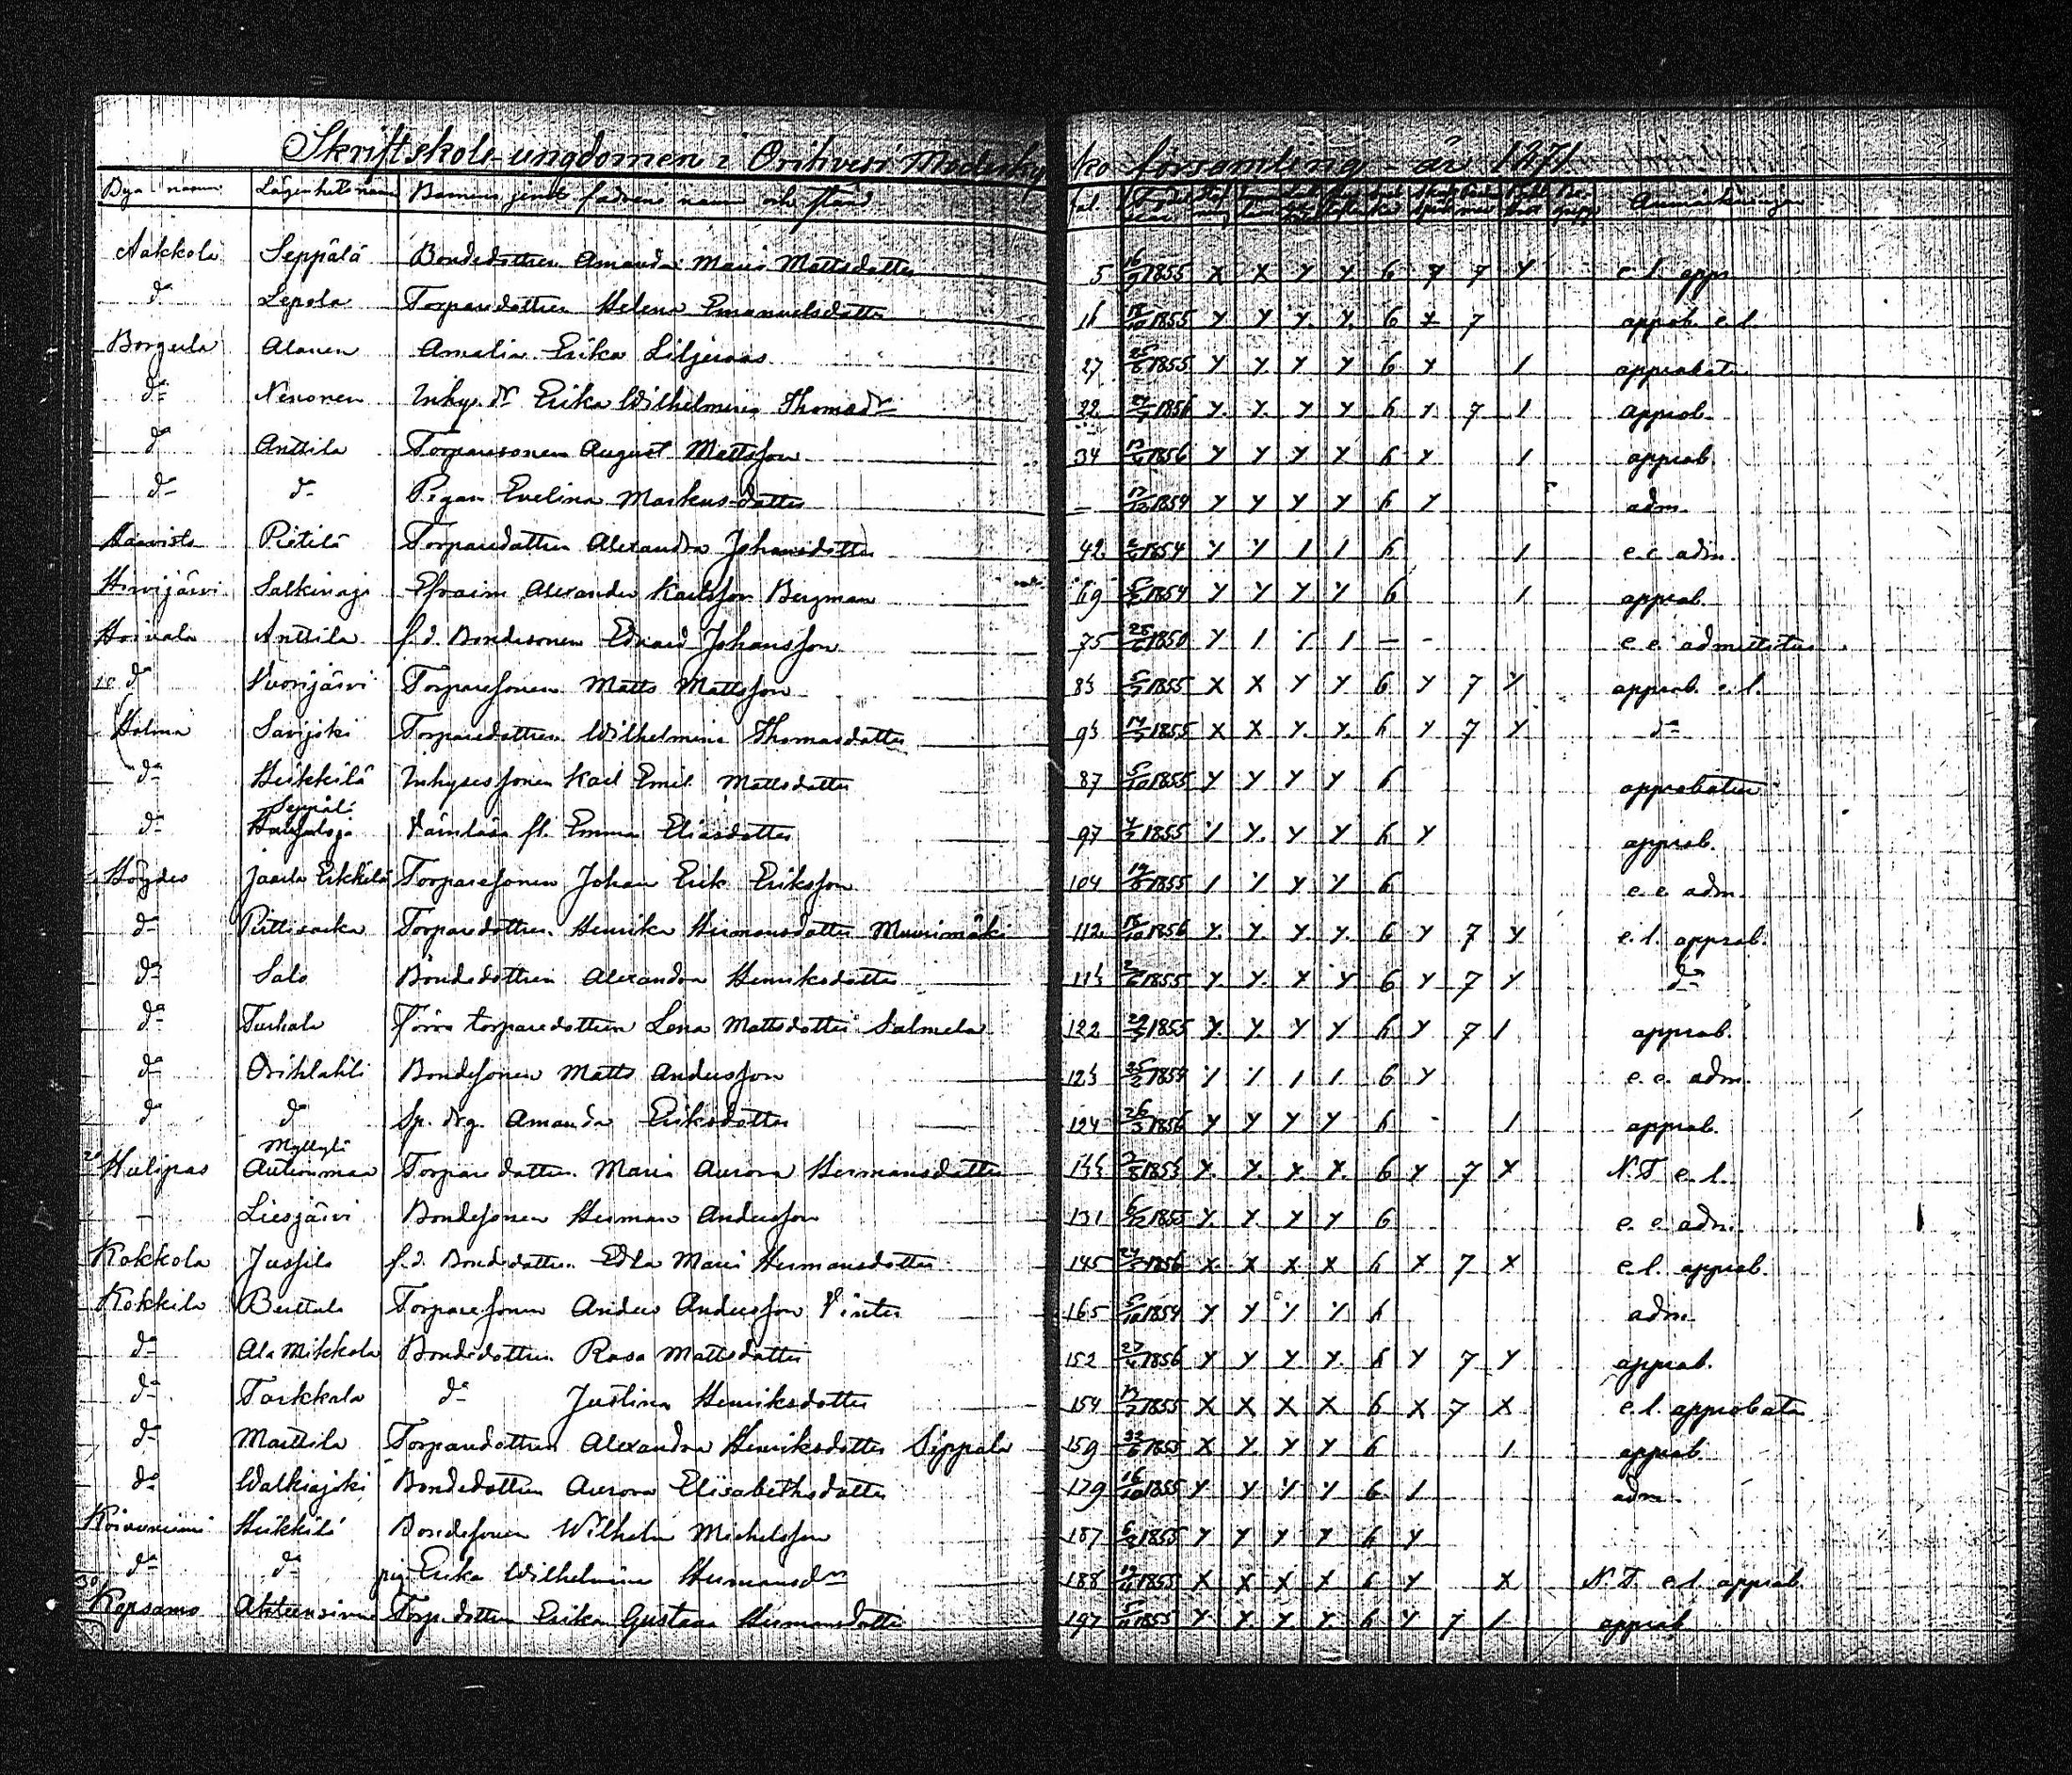 Skriftskole-ungdomen i Orihvesi Moderkyrko församling år 1871.
Bya namn Lägenhets namn Barnens jemte fadrens namn och stånd Anmärkningar
Aakkola Seppälä Bondedottren Amanda Maria Mattsdotter 5 1855 X X Y Y 6 7 7 Y e. l. appr.
do Lepola Torparedottren Helena Emanuelsdotter 16 1855 Y Y Y. Y. 6 X 7 approb. e. l.
Borgula Alanen Amalia Erika Liljeroos 27 25/8 1855 Y Y. Y Y 6 Y 1 approbatur
do Nenonen Inhys. dr Erika Wilhelmina Thomasdr 22 1856 Y. Y. Y Y 6 Y 7 1 approb.
do Anttila Torparesonen August Mattsson 34 1856 Y Y Y Y 6 Y 1 approb.
do do Pigan Evelina Markusdotter – 17/12 1854 Y Y Y Y 6 Y adm.
Pietilä Torparedottren Alexandra Johansdotter 42 1854 Y Y 1 1 6 1 e. c. adm.
Hirvijärvi Salkinoja Efraim Alexander Karlsson Bergman 69 1854 Y Y Y Y 6 1 approb.
Hoivala Anttila f. d. Bondesonen Edvard Johansson 75 1850 Y 1 1 1 – - e. c. admittitur
10 do Vuorijärvi Torparesonen Matts Mattsson 83 1855 X X Y Y 6 Y 7 Y approb. e. l.
Holma Savijoki Torparedottren Wilhelmina Thomasdotter 93 1855 X X Y. Y. 6 Y 7 Y do
do Heikkilä Inhysessonen Karl Emil Mattsdotter 87 5/10 1855 Y Y Y Y 6 approbatur
Seppälä
do Emma Eliasdotter 97 1855 Y Y. Y Y 6 Y approb.
Höydes Jaarla Erkkilä Torparesonen Johan Erik Eriksson 104 1855 1 Y Y Y 6 e. c. adm.
do Torparedottren Henrika Hermansdotter Muurimäki 112 18/10 1856 Y. Y. Y. Y. 6 Y 7 Y e. l. approb.
do Salo Bondedottren Alexandra Henriksdotter 113 1855 Y. Y. Y Y 6 Y 7 Y do
do Turkala Förra torparedottren Lena Mattsdotter Salmela 122 1855 Y. Y Y Y 6 Y 7 1 approb.
do Orihlahti Bondesonen Matts Andersson 123 1854 Y Y 1 1 6 Y e. c. adm.
do do Sp. drg. Amanda Eriksdotter 124 26/3 1856 Y Y Y Y 6 - 1 approb.
Myllylä
20 Hulipas Autionmaa Torparedotter. Maria Aurora Hermansdotter 133 Y. Y. Y. Y. 6 Y 7 X N. T. e. l.
– Liesjärvi Bondesonen Herman Andersson 131 6/12 1855 Y. Y Y Y 6 e. c. adm.
Kokkola Jussila f. d. Bondedotter. Edla Maria Hermansdotter 145 1856 X. X X X 6 X 7 X e. l. approb.
Kokkila Berttala Torparesonen Anders Andersson Vinter 165 5/10 1854 Y Y Y Y 6 adm.
do Ala Mikkola Bondedottren Rosa Mattsdotter 152 27/4 1856 Y Y Y Y. 6 Y 7 Y approb.
do Tarkkala do Justina Henriksdotter 154 1855 X X X X 6 X 7 X e. l. approbatur
do Marttila Torparedottren Alexandra Henriksdotter Seppälä 159 1855 X Y. Y Y 6 1 approb.
do Walkiajoki Bondedottren Aurora Elisabethsdotter 179 16/10 1855 Y Y Y Y 6 1 adm.
Koivuniemi Heikkilä Bondesonen Wilhelm Michelsson 187 1855 Y Y Y Y 6 Y
do do pig. Erika Wilhelmina Hermansdr 188 1855 X X X X 6 Y X N. T. e. l. approb.
30 Kopsamo Torp.dottren Erika Gustava Hermansdotter 197 1855 Y Y. Y. Y. 6 Y 7 1 approb.